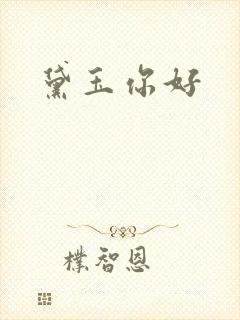 黛玉你好
樸智恩